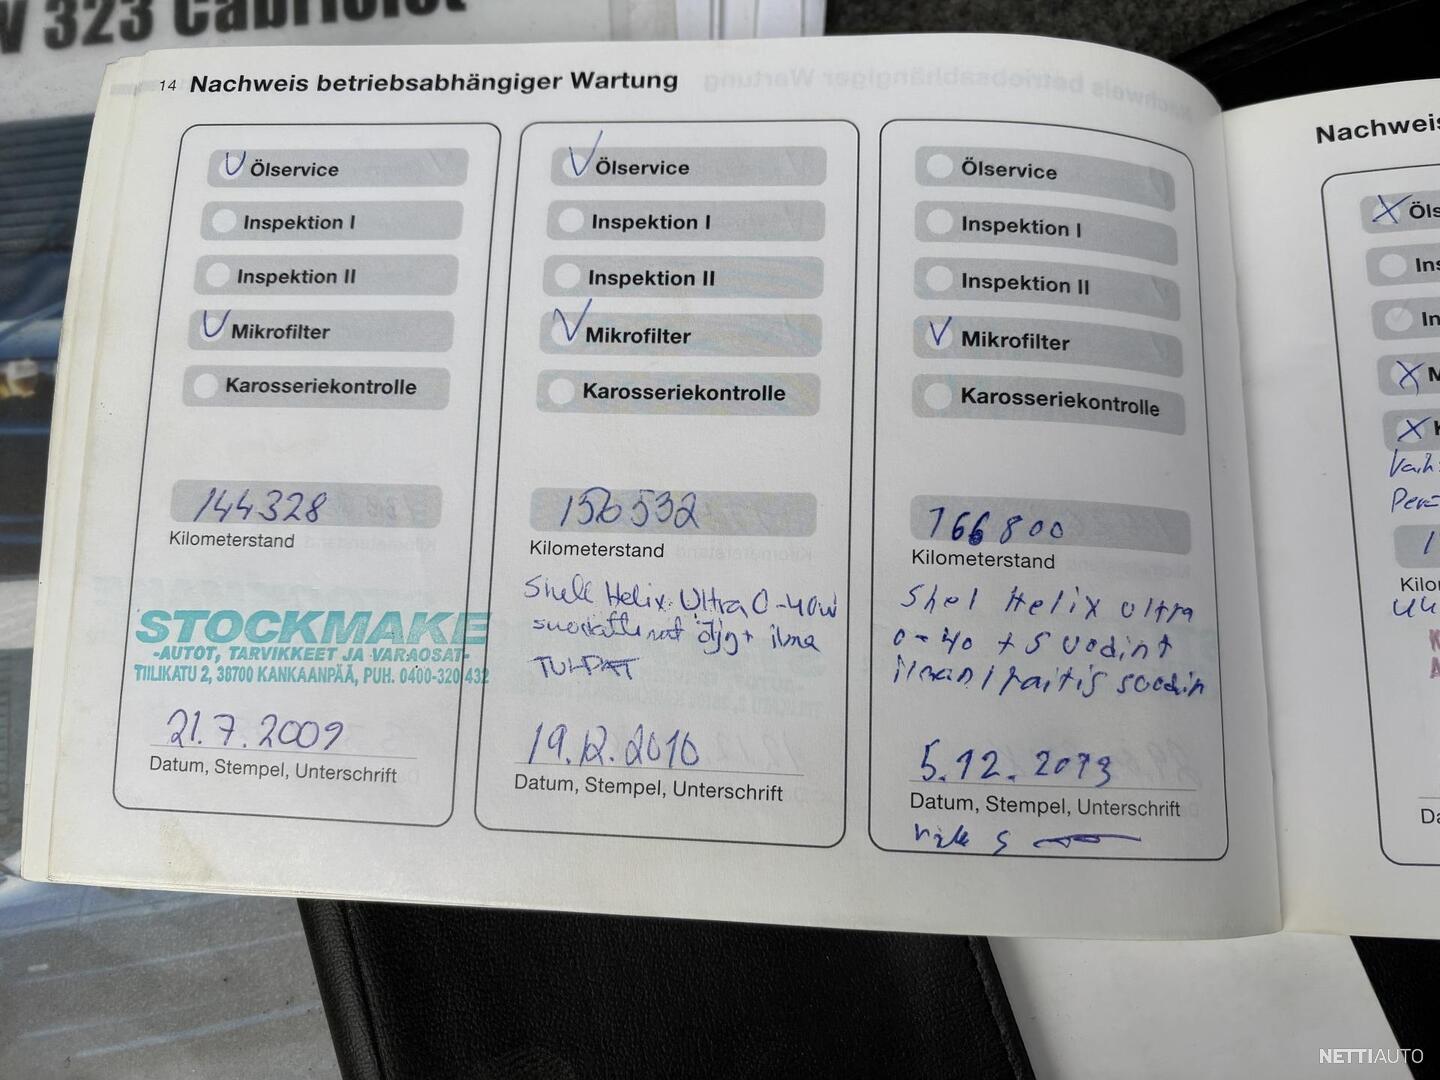 323 Cabriolet
14 Nachweis betriebsabhängiger Wartung
Ölservice
Inspektion I
Inspektion II
Mikrofilter
Karosseriekontrolle
144328
Kilometerstand
STOCKMAKE
-AUTOT, TARVIKKEET JA VARAOSAT-
TIILIKATU 2, 38700 KANKAANPÄÄ, PUH. 0400-320 432
21.7.2009
Datum, Stempel, Unterschrift
Ölservice
Inspektion I
Inspektion II
Mikrofilter
Karosseriekontrolle
156532
Kilometerstand
Shell Helix Ultra 0-40W
öljy + ilma
19.12.2010
Datum, Stempel, Unterschrift
Ölservice
Inspektion I
Inspektion II
Mikrofilter
Karosseriekontrolle
166800
Kilometerstand
Shel Helix Ultra
0-40 + Suodint
5.12.2013
Datum, Stempel, Unterschrift
Nachweis
Öls
Ins
In
M
K
Kilo
Da
NETTIAUTO